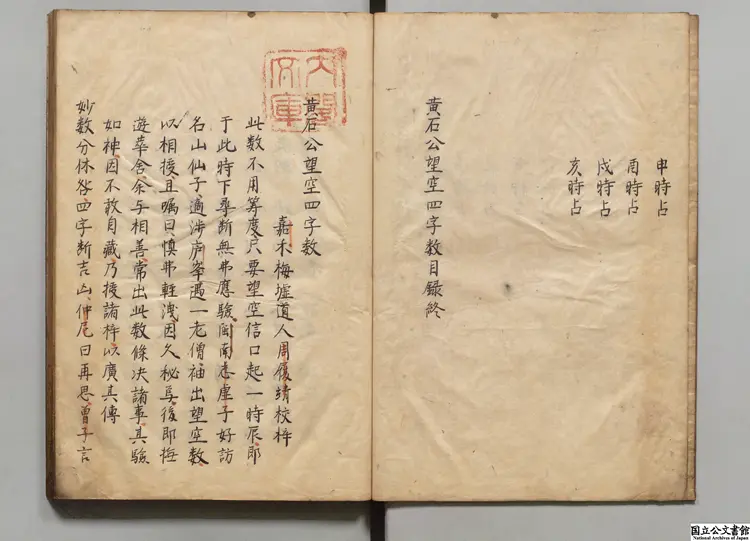 申時占
酉時占
戌時占
亥時占
黃石公望空四字数目録終
黃石公望空四字数
嘉禾梅墟道人周履靖校梓
此数不用筭度只要望空信口起一時辰即
于此時下尋断無弗應驗閩南志虚子好訪
名山仙子適渉庐峯遇一老僧袖出望空数
以相授且嘱曰慎弗軽洩因久秘焉後即梅
遊華舎余与相善常出此数條决諸事其驗
如神因不敢自藏乃授諸梓以廣其傳
妙数分休咎四字断吉凶仲尼曰再思曽子言
内閣文庫
国立公文書館
National Archives of Japan